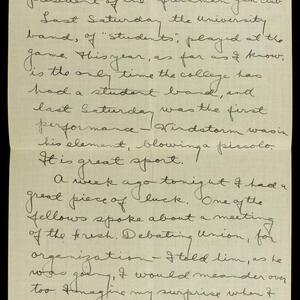 president of the Freshman glee club.
Last Saturday the University
band, of "students", played at the
game. This year, as far as I know,
is the only time the college has
had a student band, and
last Saturday was the first
performance — Windstorm was in
his element, blowing a piccolo.
It is great sport.
A week ago tonight I had a
great piece of luck. One of the
fellows spoke about a meeting
of the Fresh. Debating Union, for
organization — I told him, as he
was going, I would meander over
too. Imagine my surprise when I